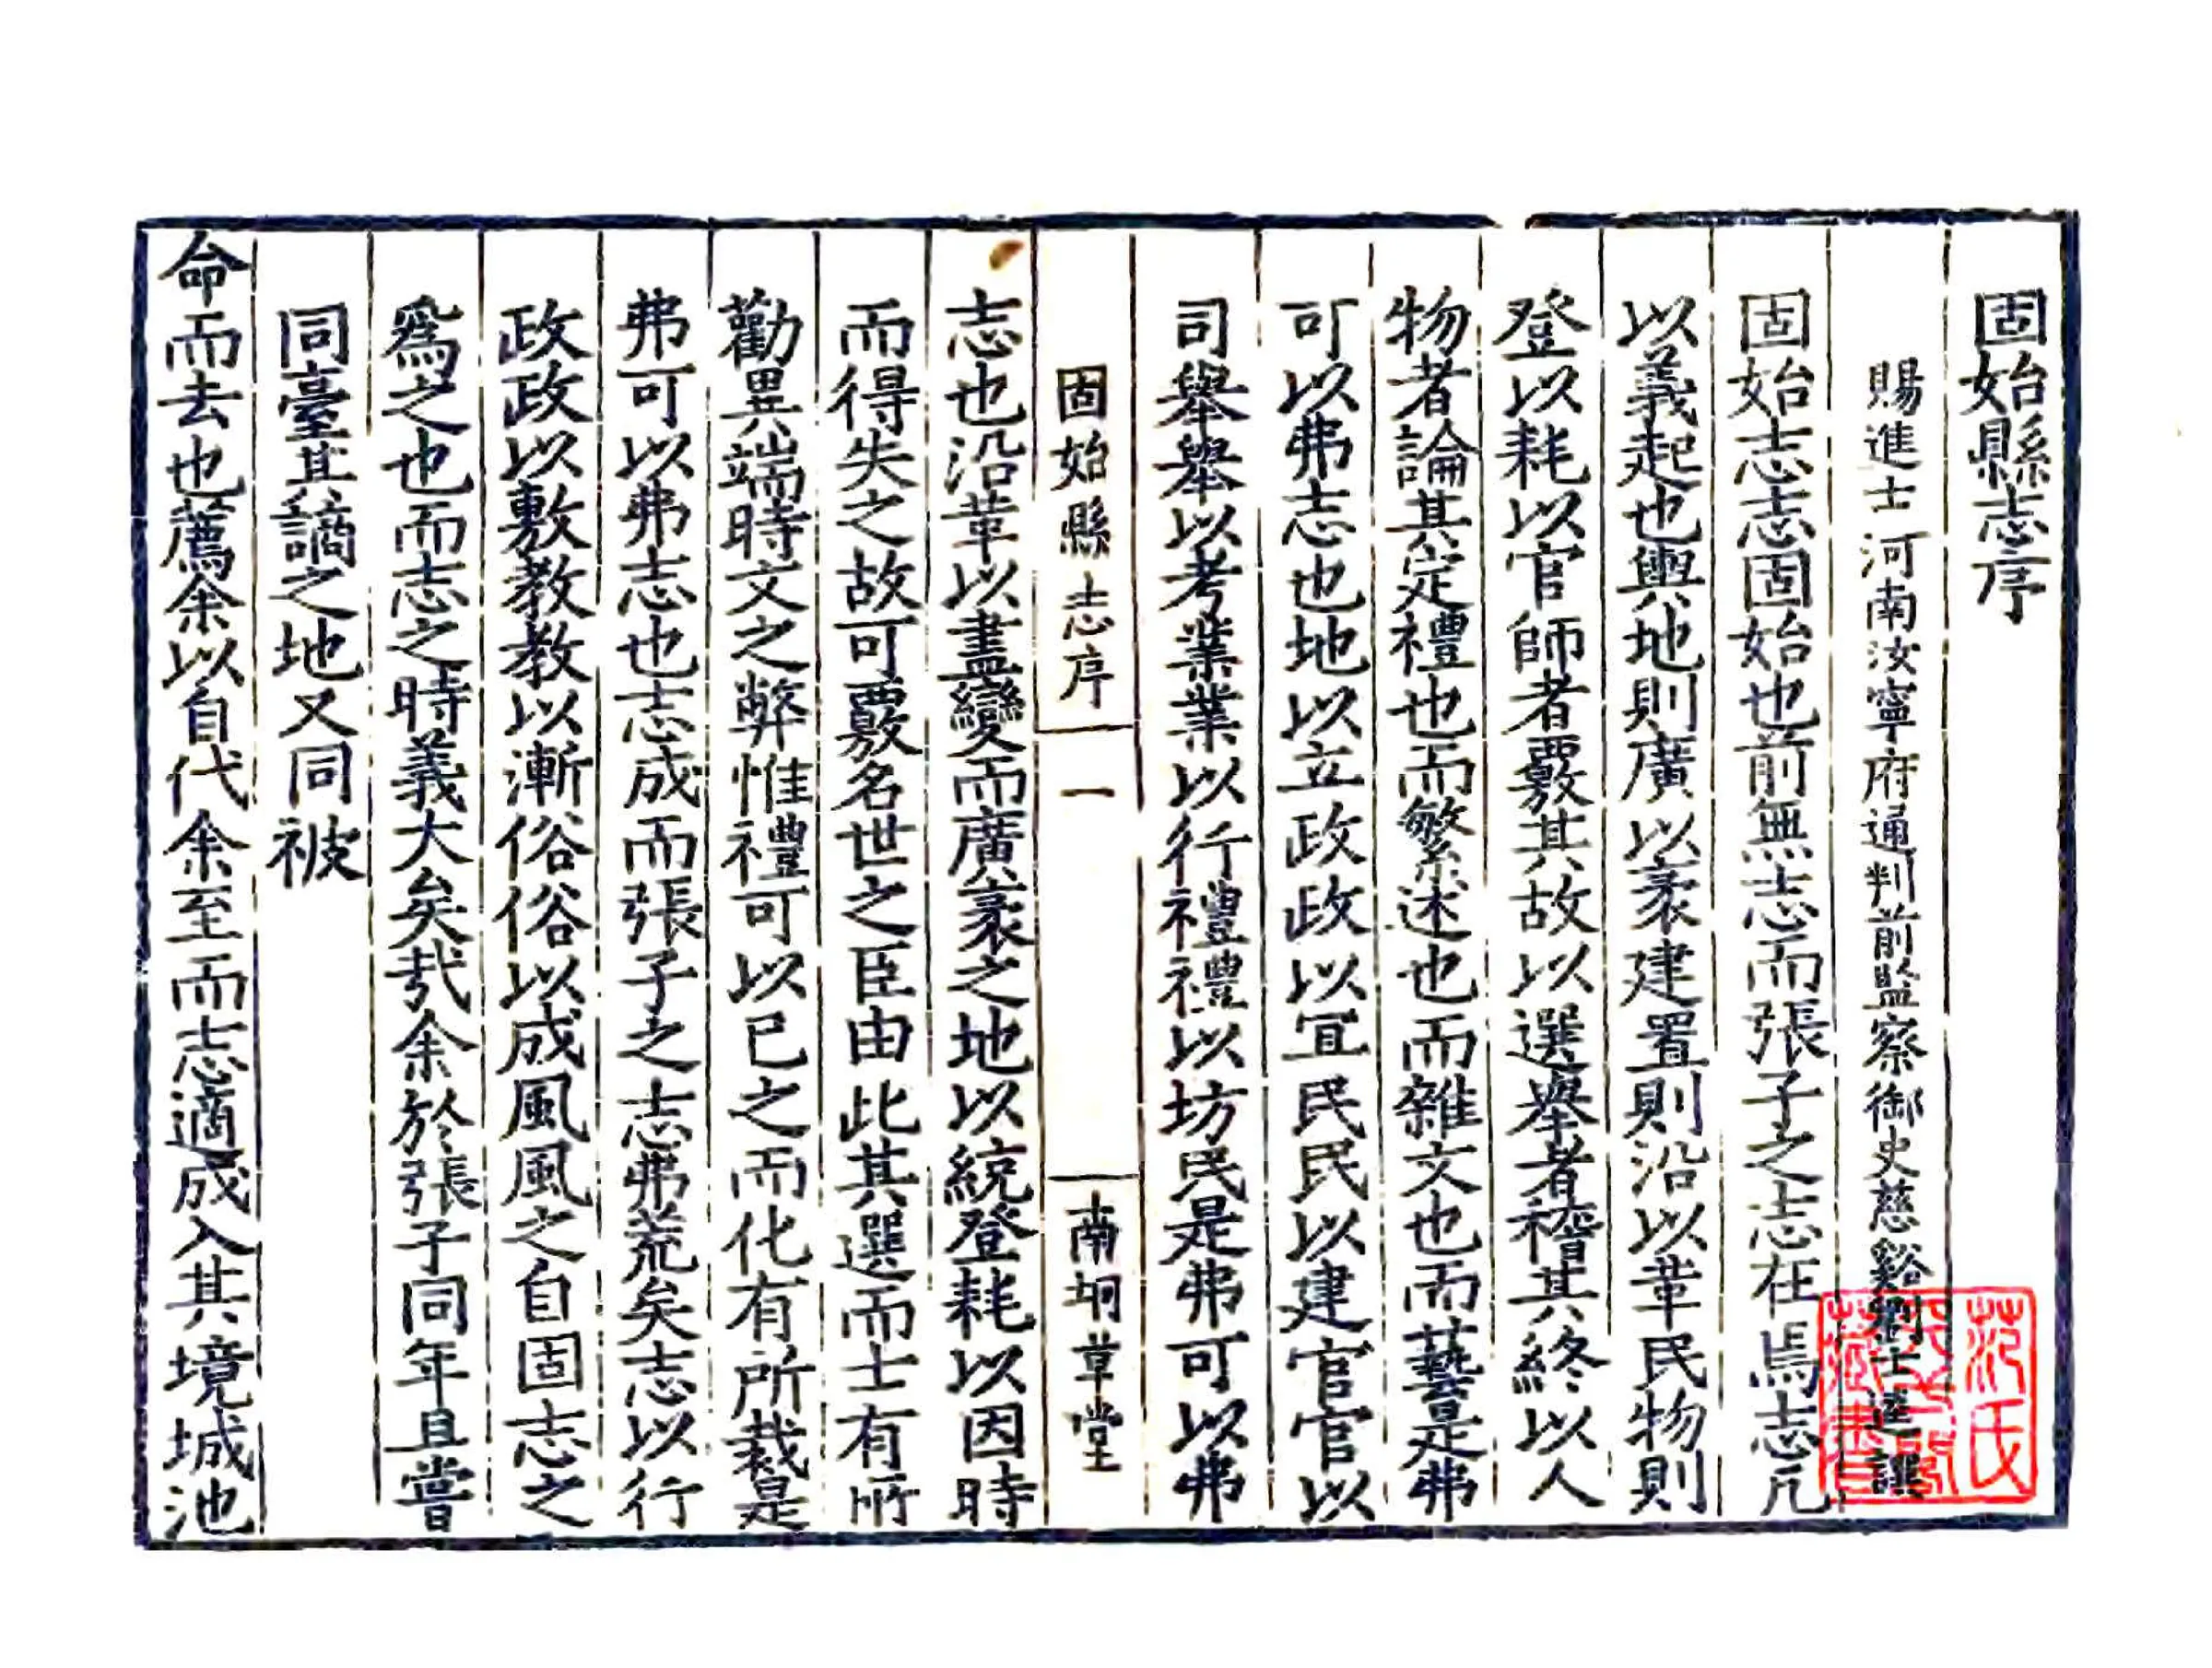 固始縣志序
賜進士河南汝寧府通判前監察御史慈谿劉士逵譔
固始志志固始也前無志而張子之志在焉志凡
以義起也輿地則廣以袤建置則沿以革民物則
登以耗以官師者覈其故以選舉者稽其終以人
物者論其定禮也而繁述也而雜文也而藝是弗
可以弗志也地以立政政以宜民民以建官官以
司舉舉以考業業以行禮禮以坊民是弗可以弗
固始縣志序
一
南坰草堂
志也沿革以盡變而廣袤之地以統登耗以因時
而得失之故可覈名世之臣由此其選而士有所
勸異端時文之弊惟禮可以已之而化有所裁是
弗可以弗志也志成而張子之志弗荒矣志以行
政政以敷教教以漸俗俗以成風風之自固志之
爲之也而志之時義大矣㢤余於張子同年且嘗
同臺其謫之地又同被
命而去也薦余以自代余至而志適成入其境城池
范氏
藏書